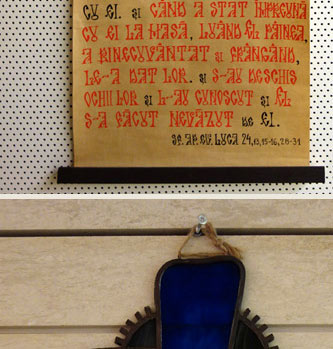 CU EI. și CÂND A STAT ÎMPREUNĂ
CU EI LA MASĂ, LUÂND EL PÂINEA,
A BINECUVÂNTAT și FRÂNGÂND,
LE-A DAT LOR. și S-AU DESCHIS
OCHII LOR și L-AU CUNOSCUT și EL
S-A FĂCUT NEVĂZUT DE EI.
SF. AP. EV. LUCA 24,13,15-16,28-31